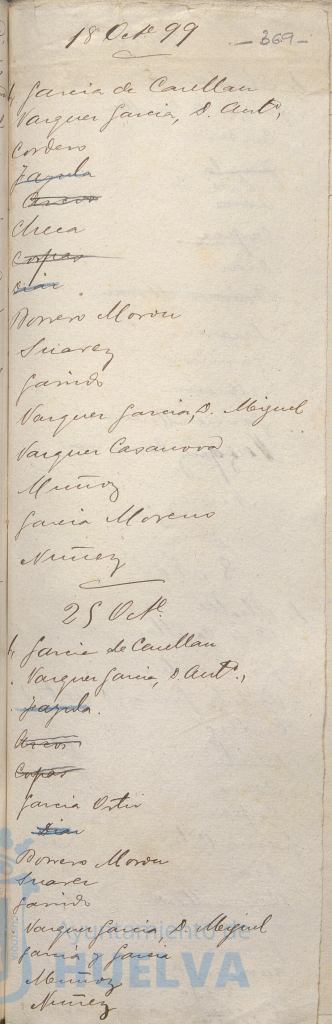 18 Octe 99
- 369 -
García de Casellan
Vazquez Garcia, D. Anto,
Cordero
Zayula
Arcos
Checa
Corpas
Diaz
Borrero Moron
Suarez
Garrido
Vazquez Garcia, D. Miguel
Vazquez Casanova
Muñoz
Garcia Moreno
Nuñez
25 Octe
Garcia de Casellan
Vazquez Garcia, D. Anto,
Zayula.
Arcos
Corpas
Garcia Ortiz
Diaz
Borrero Moron
Suarez
Garrido
Vazquez Garcia, D. Miguel
Garcia y Garcia
Muñoz
Nuñez
Ayuntamiento de
HUELVA